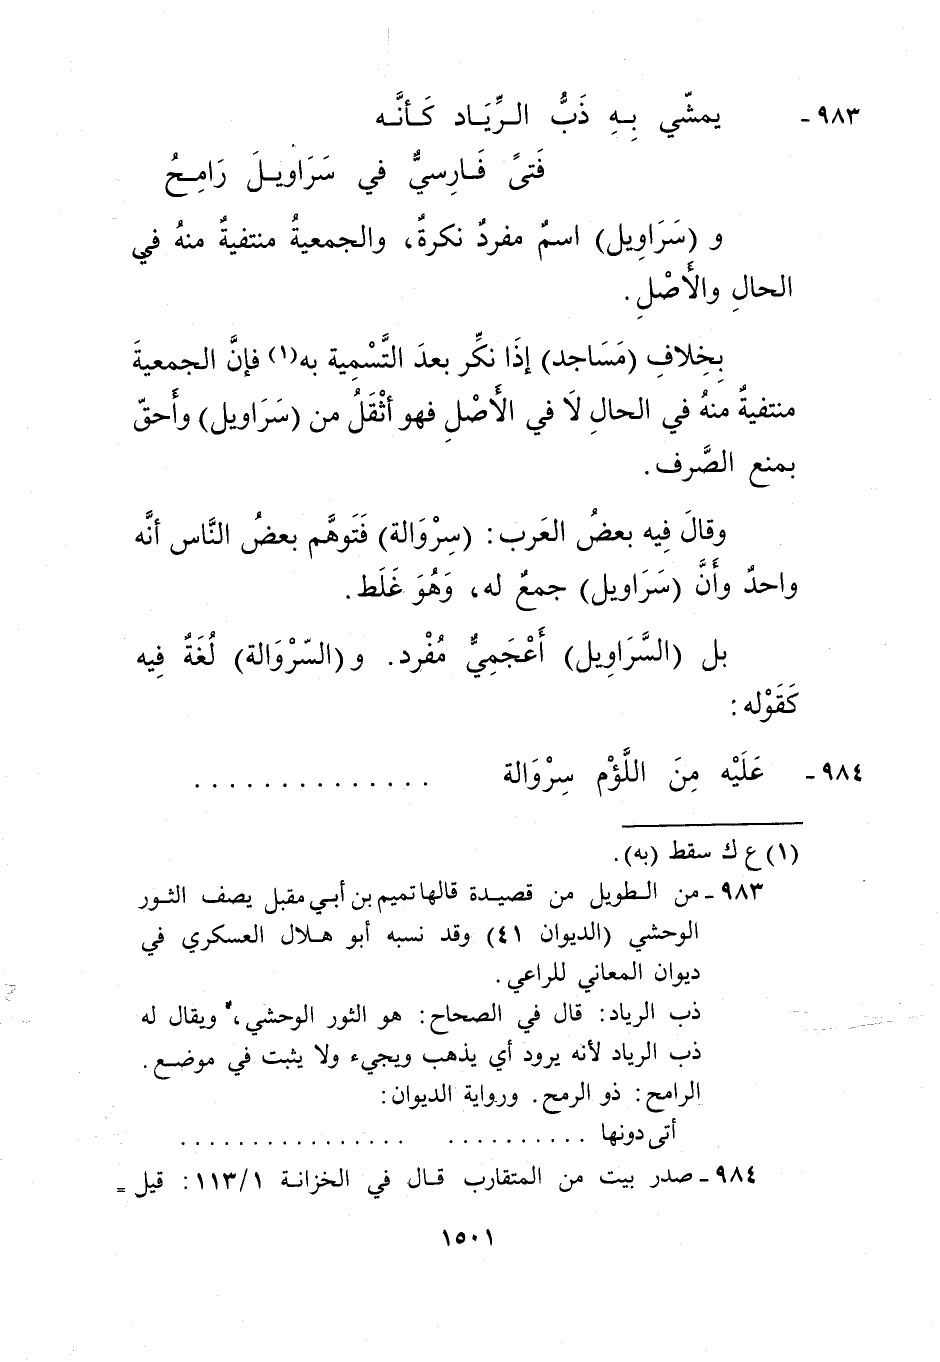 ٩٨٣ - يمشّي بِهِ ذَبُّ الرِّيَاد كَأنَّه
فَتىً فَارِسيٌّ في سَرَاويلَ رَامِحُ
و (سَرَاوِيل) اسمٌ مفردٌ نكرةٌ، والجمعيةُ منتفيةٌ منهُ في
الحالِ والأَصْلِ.
بِخِلافِ (مَسَاجد) إذَا نكِّر بعدَ التَّسْمِية به(١) فإنَّ الجمعيةَ
منتفيةٌ منهُ في الحالِ لَا في الأَصْلِ فهو أثْقَلُ من (سَرَاويل) وأَحقّ
بمنع الصَّرف.
وقالَ فِيه بعضُ العَرب: (سِرْوَالة) فَتَوهَّم بعضُ النَّاس أنَّه
واحدٌ وأَنَّ (سَرَاويل) جمعٌ له، وَهُوَ غَلَط.
بل (السَّرَاوِيل) أَعْجَمِيٌّ مُفْرد. و(السّرْوَالة) لُغَةٌ فِيه
كَقَوْله:
٩٨٤ - عَلَيْه مِنَ اللَّؤْم سِرْوَالة ..............
(١) ع ك سقط (به).
٩٨٣ - من الطويل من قصيدة قالها تميم بن أبي مقبل يصف الثور
الوحشي (الديوان ٤١) وقد نسبه أبو هلال العسكري في
ديوان المعاني للراعي.
ذب الرياد: قال في الصحاح: هو الثور الوحشي، ويقال له
ذب الرياد لأنه يرود أي يذهب ويجيء ولا يثبت في موضع.
الرامح: ذو الرمح. ورواية الديوان:
أتى دونها .......... ................
٩٨٤ - صدر بيت من المتقارب قال في الخزانة ١١٣/١: قيل =
١٥٠١